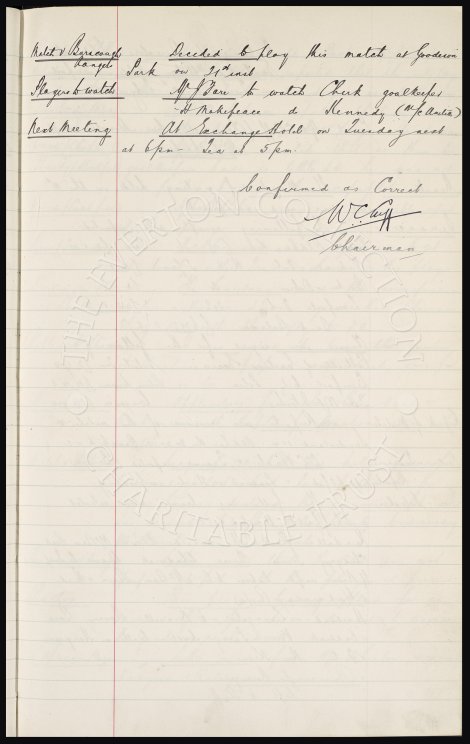 Match v Burscough Decided to play this match at Goodison
Rangers Park on 21st inst
Players to watch Mr Bare to watch Chirk goalkeeper
H Makepeace do Kennedy
Next Meeting At Exchange Hotel on Tuesday next
at 6pm - Tea at 5pm.
Confirmed as Correct
W.C. Cuff
Chairman
THE EVERTON COLLECTION
CHARITABLE TRUST